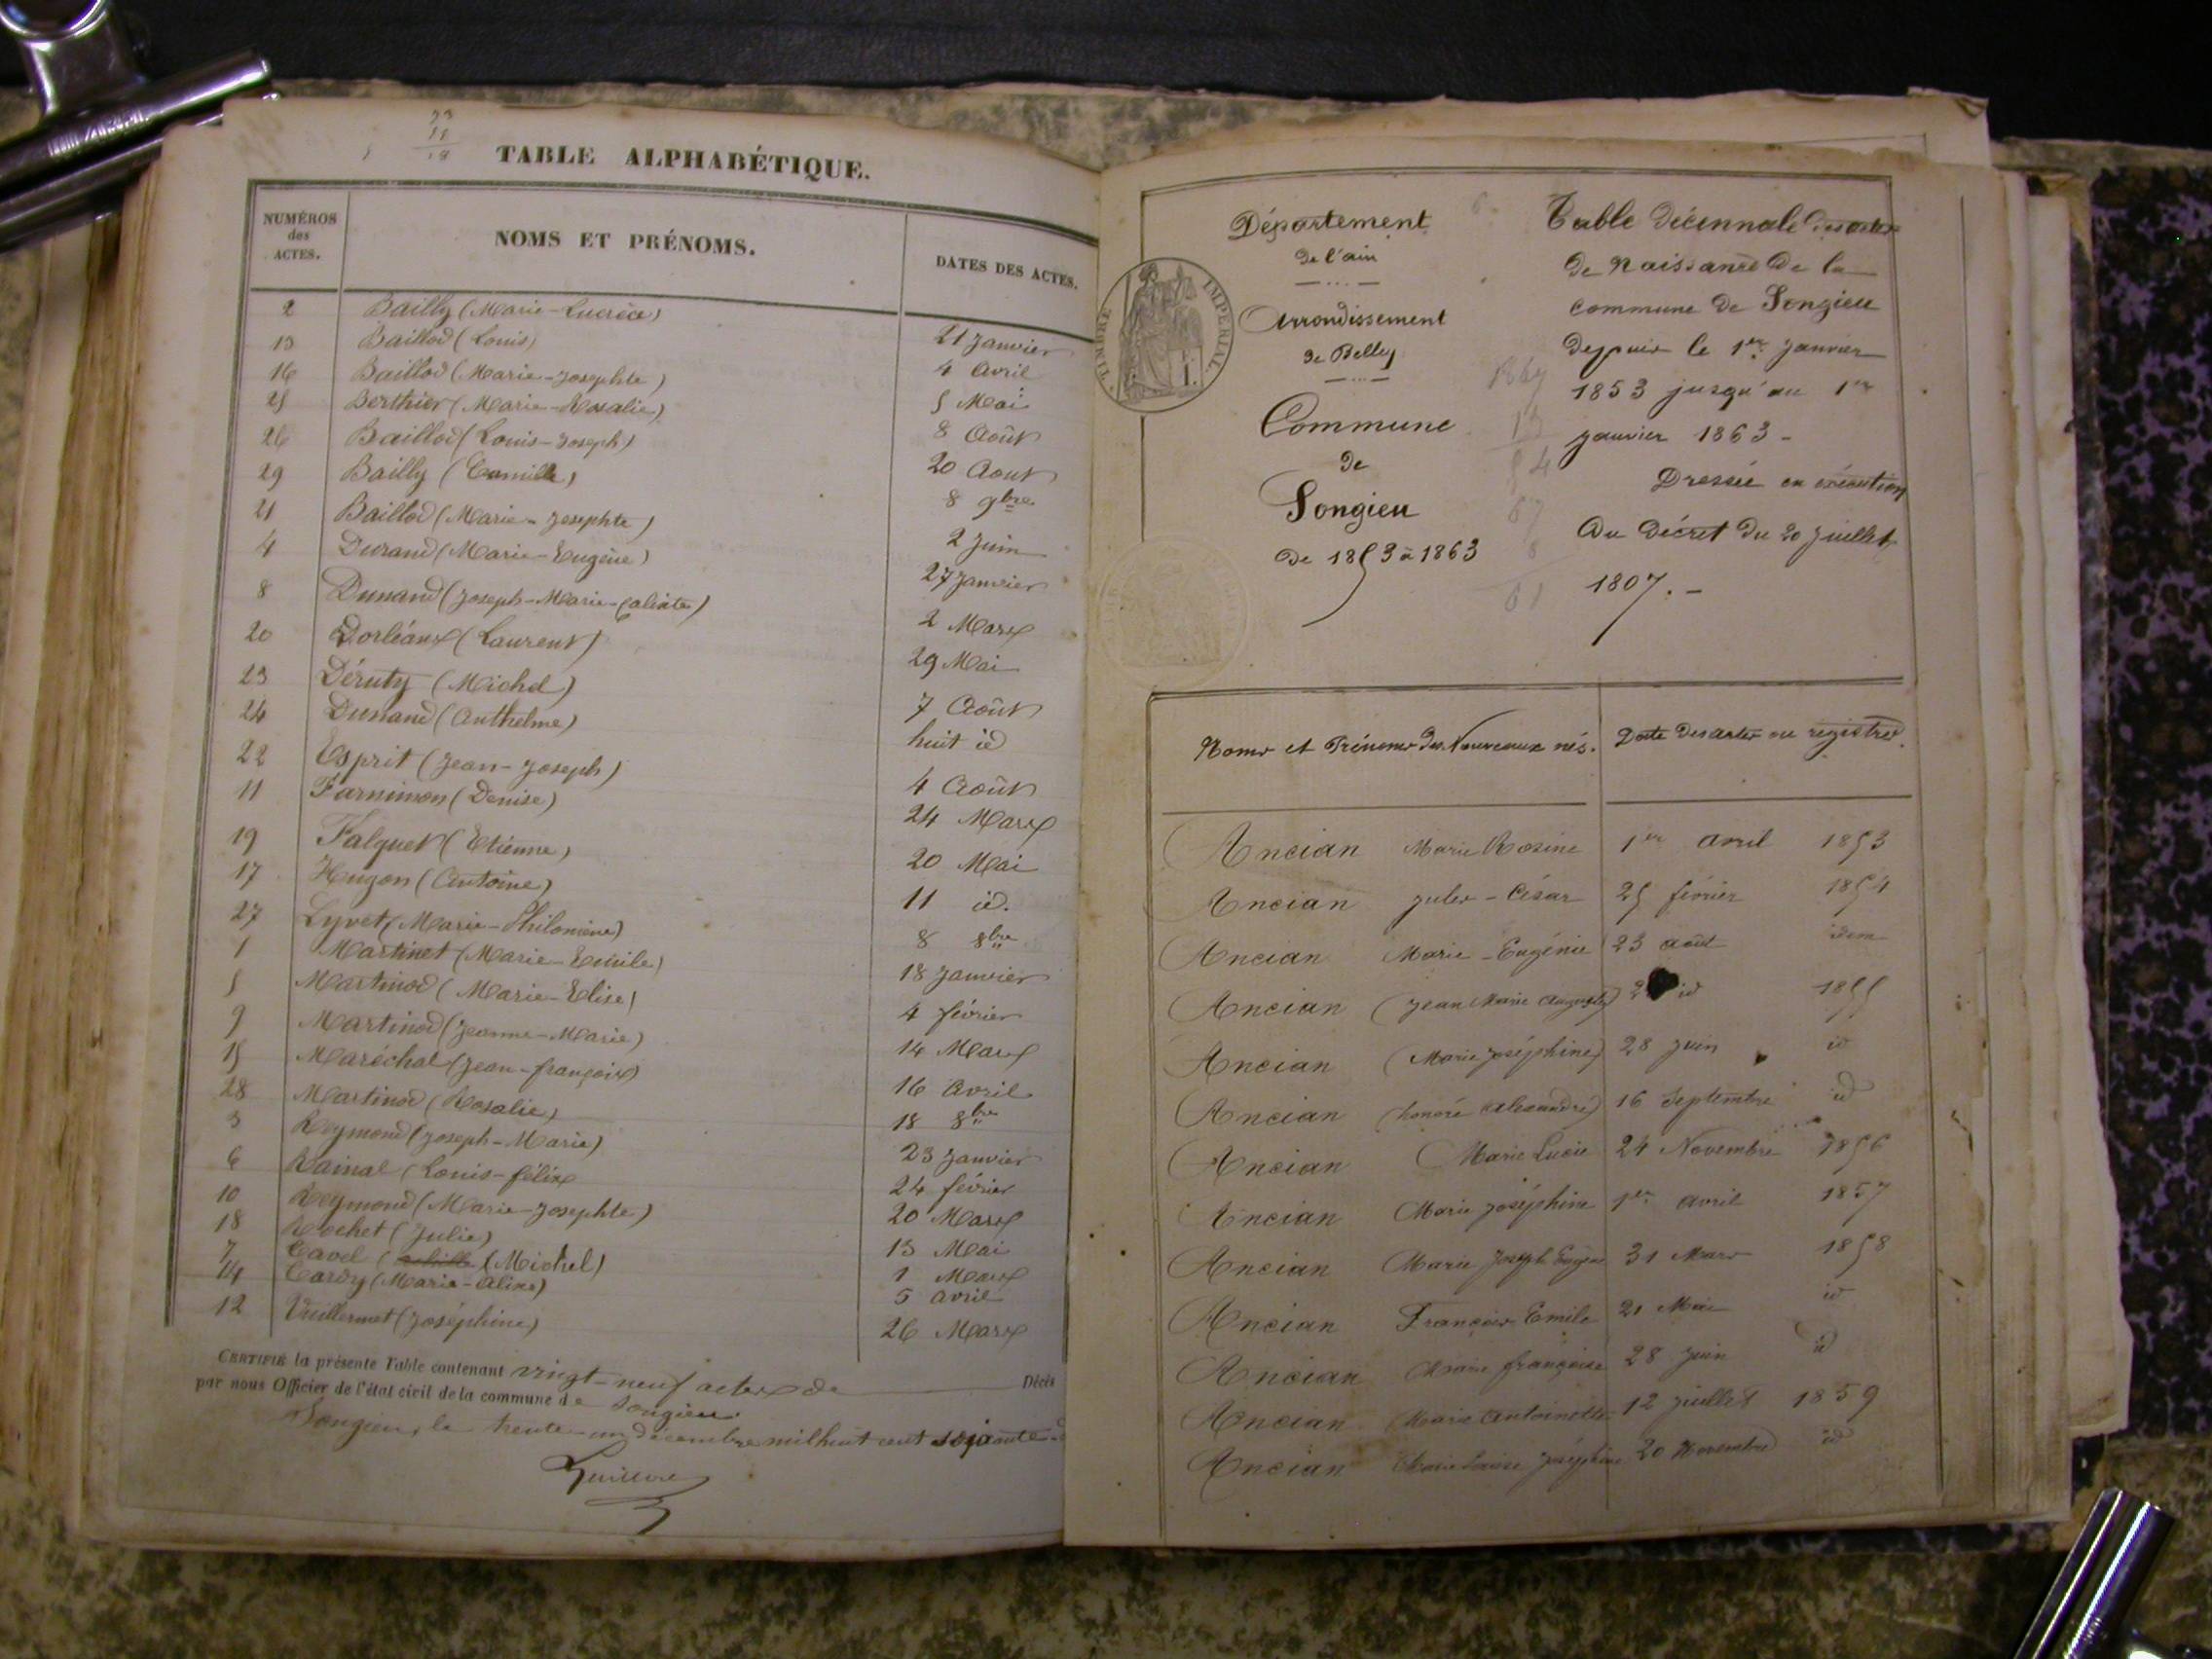 TABLE ALPHABÉTIQUE.
NUMÉROS des ACTES. NOMS ET PRÉNOMS. DATES DES ACTES.
2 Bailly (Marie-Lucrèce) 21 Janvier
13 Baillod (Louis) 4 Avril
16 Baillod (Marie-Josephte) 5 Mai
25 Berthier (Marie-Rosalie) 8 Août
26 Baillod (Louis-Joseph) 20 Aout
29 Bailly (Camille) 8 9bre
21 Baillod (Marie-Josephte) 2 Juin
4 Durand (Marie-Eugène) 27 Janvier
8 Dunand (Joseph-Marie-Calixte) 2 Mars
20 Dorléans (Laurent) 29 Mai
23 Déruty (Michel) 7 Août
24 Dunand (Anthelme) huit id
22 Esprit (Jean-Joseph) 4 Août
11 Farnimon (Denise) 24 Mars
19 Falquet (Etienne) 20 Mai
17 Hugon (Antoine) 11 id.
27 Lyvet (Marie-Philomène) 8 8bre
1 Martinet (Marie-Emile) 18 Janvier
5 Martinod (Marie-Elise) 4 février
9 Martinod (Jeanne-Marie) 14 Mars
15 Maréchal (Jean-françois) 16 Avril
28 Martinod (Rosalie) 18 8bre
3 Reymond (Joseph-Marie) 23 Janvier
6 Rainal (Louis-félix 24 février
10 Reymond (Marie-Josephte) 20 Mars
18 Rochet (Julie) 13 Mai
7 Tavel (Michel) 1 Mars
14 Tardy (Marie-Alix) 5 avril
12 Vuillermet (Joséphine) 26 Mars
CERTIFIÉ la présente Table contenant vingt-neuf actes de Décès
par nous Officier de l'état civil de la commune de Songieu.
Songieu, le trente-un décembre mil huit cent soixante
TIMBRE IMPERIAL
Département
de l'ain
Arrondissement
de Belley
Commune
de
Songieu
De 1853 à 1863
Table Décennale des actes
de Naissance de la
commune de Songieu
depuis le 1er Janvier
1853 jusqu'au 1er
janvier 1863-
Dressée en exécution
Du Décret du 20 Juillet
1807.-
Noms et Prénoms des Nouveaux nés. Date des actes ou registres.
Ancian Marie Rosine 1er avril 1853
Ancian Jules-César 25 février 1854
Ancian Marie-Eugénie 23 août idem
Ancian (Jean Marie Auguste) id 1855
Ancian (Marie Joséphine) 28 Juin id
Ancian (honoré alexandre) 16 Septembre id
Ancian Marie Lucie 24 Novembre 1856
Ancian Marie Joséphine 1er avril 1857
Ancian Marie Joseph Eugène 31 Mars 1858
Ancian François Emile 21 Mai id
Ancian Marie françoise 28 Juin id
Ancian Marie Antoinette 12 juillet 1859
Ancian Marie Louise Joséphine 20 Novembre id